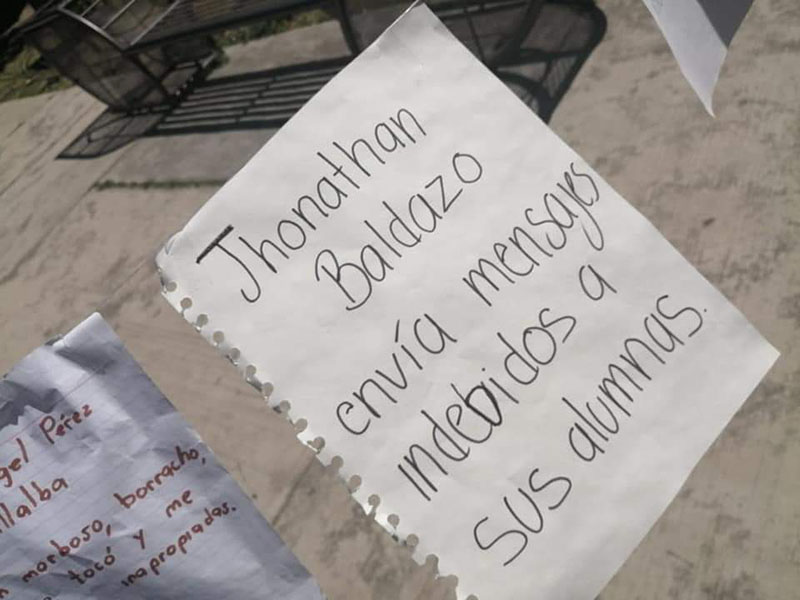 Jhonathan
Baldazo
envía mensajes
indebidos a
sus alumnas.
gel Pérez
illalba
morboso, borracho,
tocó y me
inapropiadas.